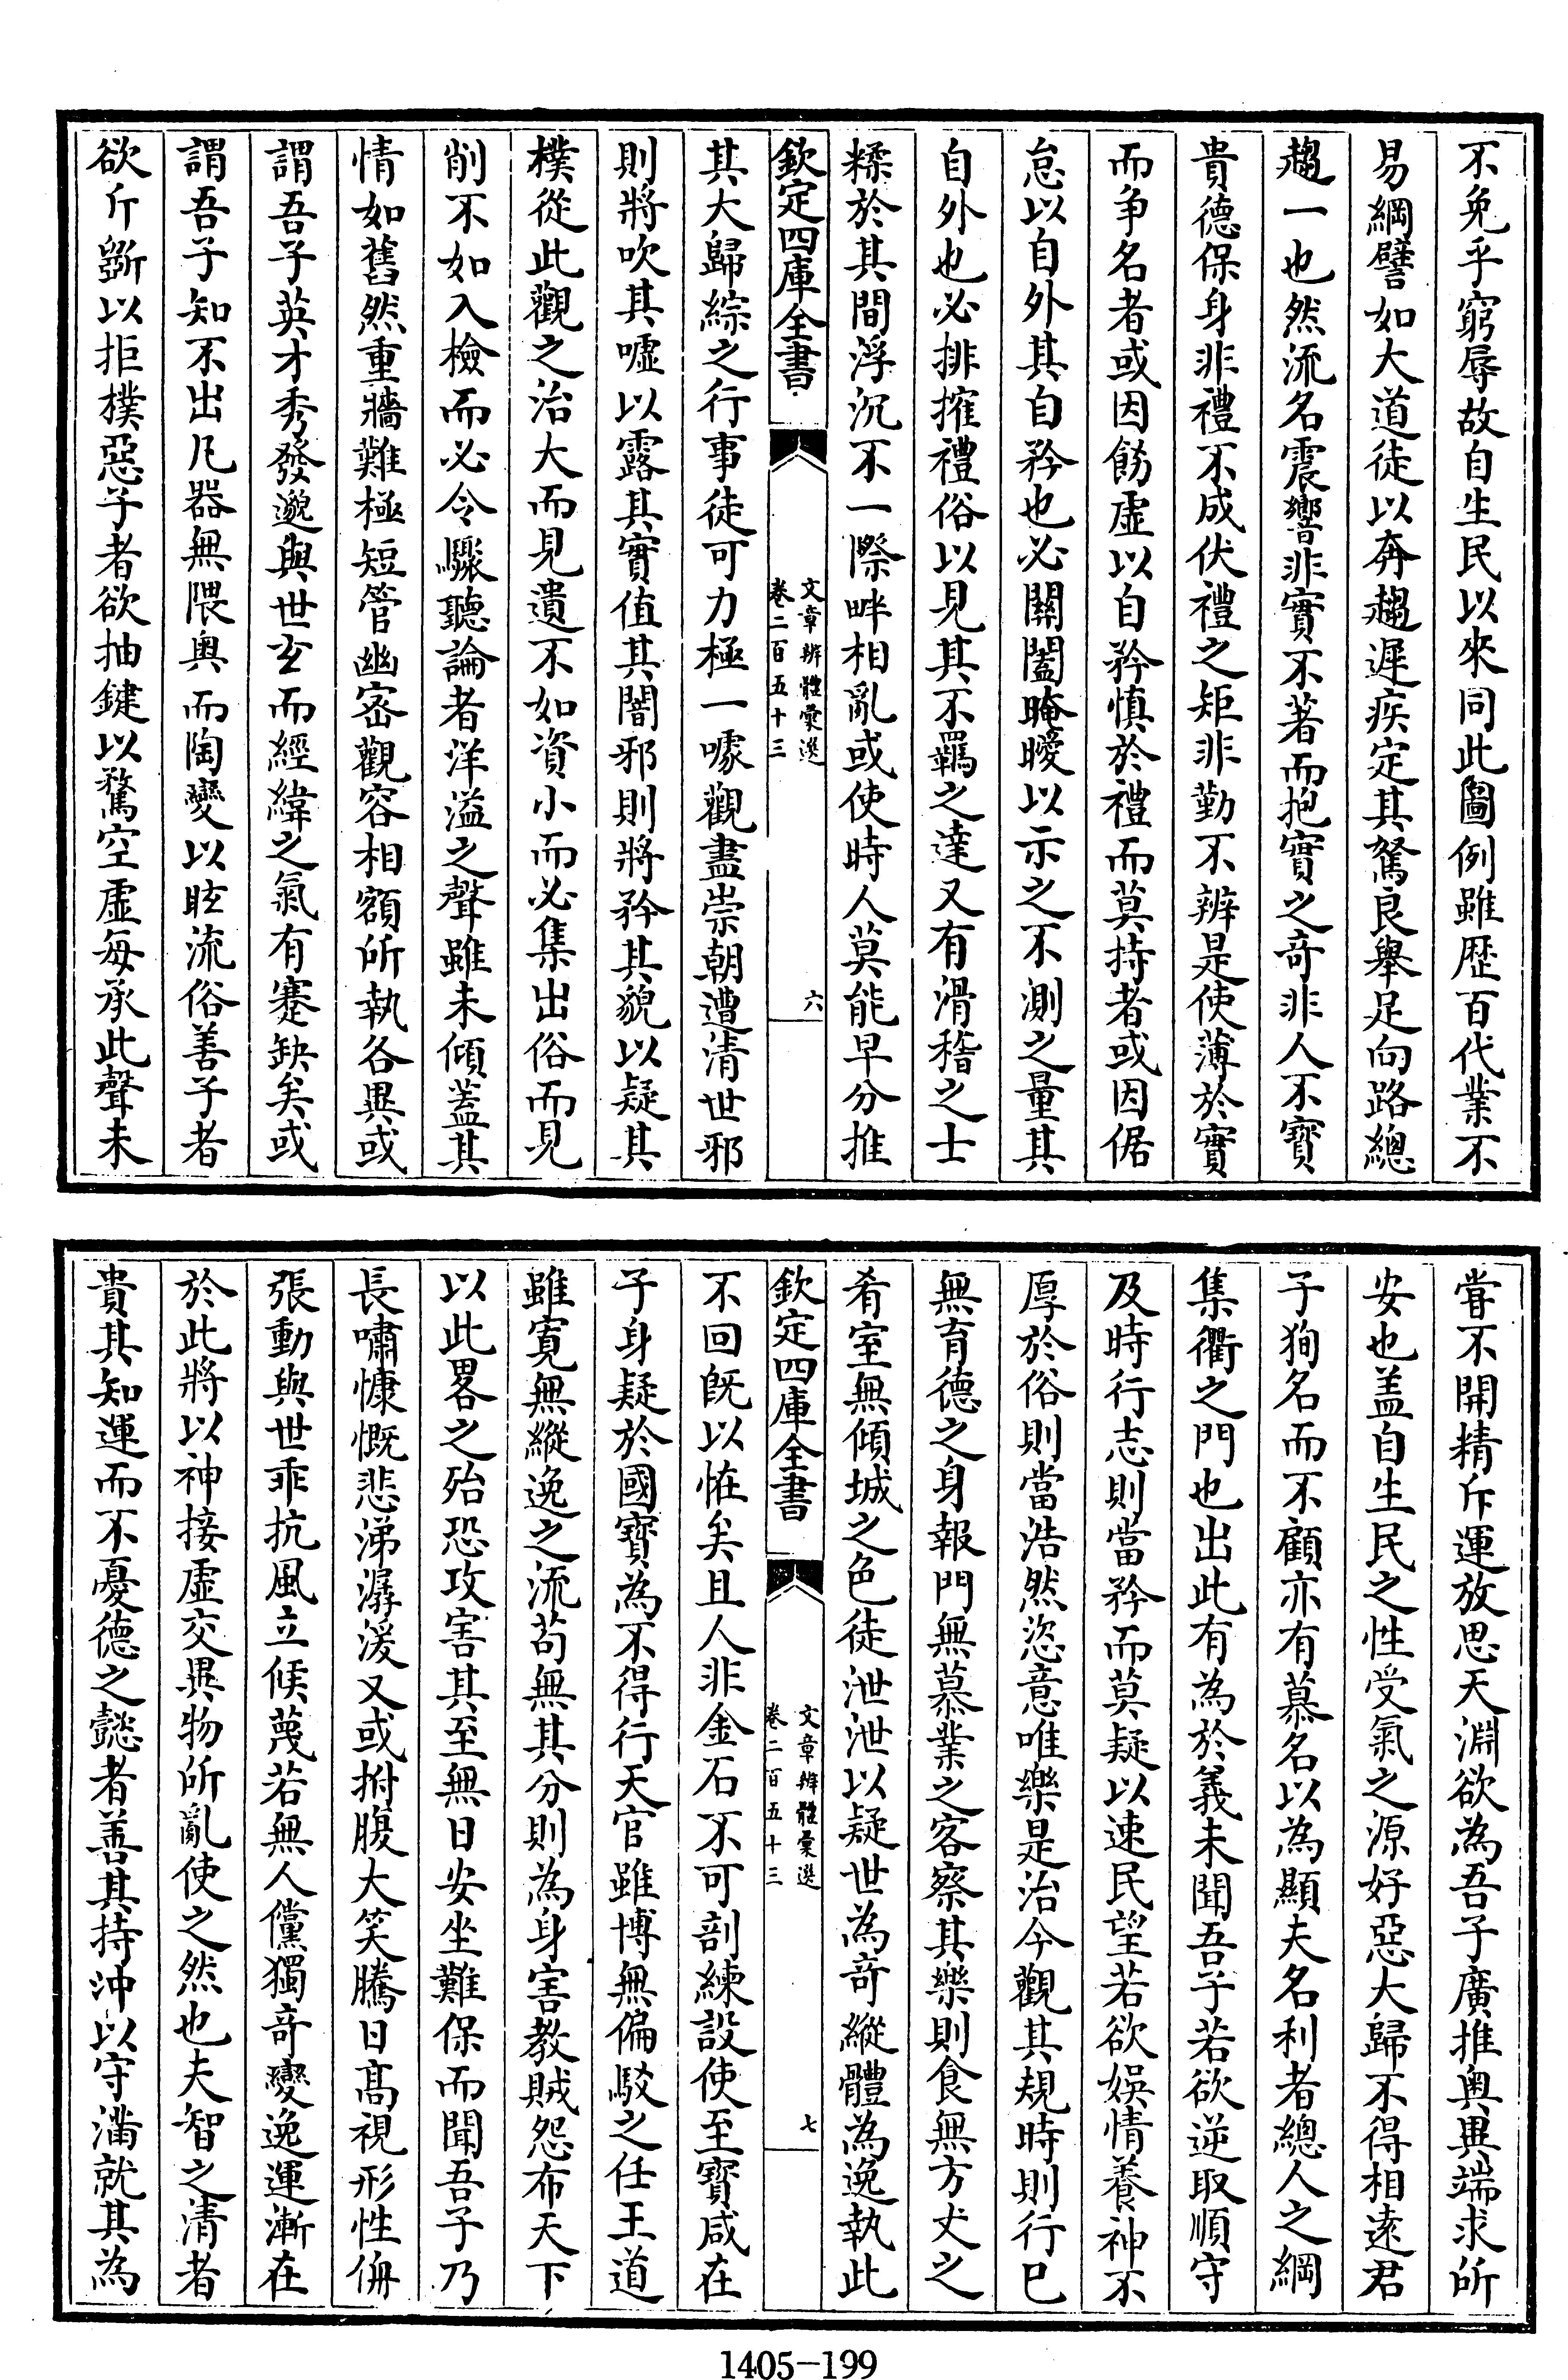 不免乎窮辱故自生民以來同此圖例雖歴百代業不
易綱譬如大道徒以奔趨遲疾定其駑良舉足向路總
趨一也然流名震響非實不著而抱實之竒非人不寳
貴德保身非禮不成伏禮之矩非勤不辨是使薄於實
而争名者或因飭虛以自矜慎於禮而莫持者或因倨
怠以自外其自矜也必關闔晻曖以示之不測之量其
自外也必排摧禮俗以見其不羈之達又有滑稽之士
糅於其間浮沉不一際畔相亂或使時人莫能早分推
欽定四庫全書
文章辨體彙選
卷二百五十三
六
其大歸綜之行事徒可力極一噱觀盡崇朝遭清世邪
則將吹其噓以露其實值其闇邪則將矜其貌以疑其
樸從此觀之治大而見遺不如資小而必集出俗而見
削不如入檢而必令驟聽論者洋溢之聲雖未傾蓋其
情如舊然重牆難極短管幽宻觀容相額所執各異或
謂吾子英才秀發邈與世玄而經緯之氣有蹇缺矣或
謂吾子知不出凡器無隈奥而陶變以眩流俗善子者
欲斤斵以拒樸惡子者欲抽鍵以騖空虛每承此聲未
嘗不開精斥運放思天淵欲為吾子廣推奥異端求所
安也盖自生民之性受氣之源好惡大歸不得相逺君
子狥名而不顧亦有慕名以為顯夫名利者總人之綱
集衢之門也出此有為於義未聞吾子若欲逆取順守
及時行志則當矜而莫疑以速民望若欲娛情養神不
厚於俗則當浩然恣意唯樂是治今觀其規時則行已
無育德之身報門無慕業之客察其樂則食無方丈之
肴室無傾城之色徒泄泄以疑世為竒縱體為逸執此
欽定四庫全書
文章辨體彙選
卷二百五十三
七
不回既以恠矣且人非金石不可剖練設使至寳咸在
子身疑於國寳為不得行天官雖博無偏駁之任王道
雖寛無縱逸之流茍無其分則為身害教賊怨布天下
以此畧之殆恐攻害其至無日安坐難保而聞吾子乃
長嘯慷慨悲涕潺湲又或拊腹大笑騰日髙視形性侜
張動與世乖抗風立候蔑若無人儻獨竒變逸運漸在
於此將以神接虛交異物所亂使之然也夫智之清者
貴其知運而不憂德之懿者善其持沖以守滿就其為
1405-199